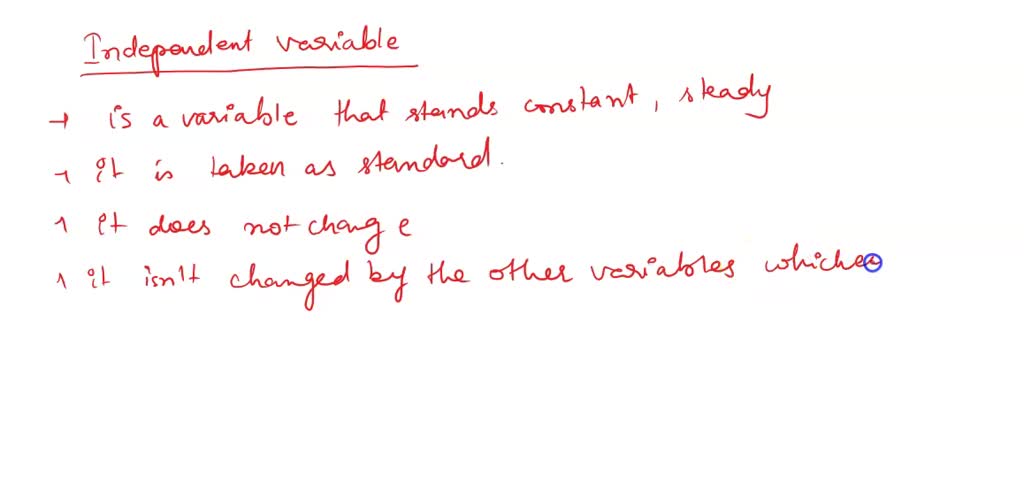 Independent variable
→ is a variable that stands constant, steady
→ it is taken as standard.
→ it does not change
→ it isn't changed by the other variables